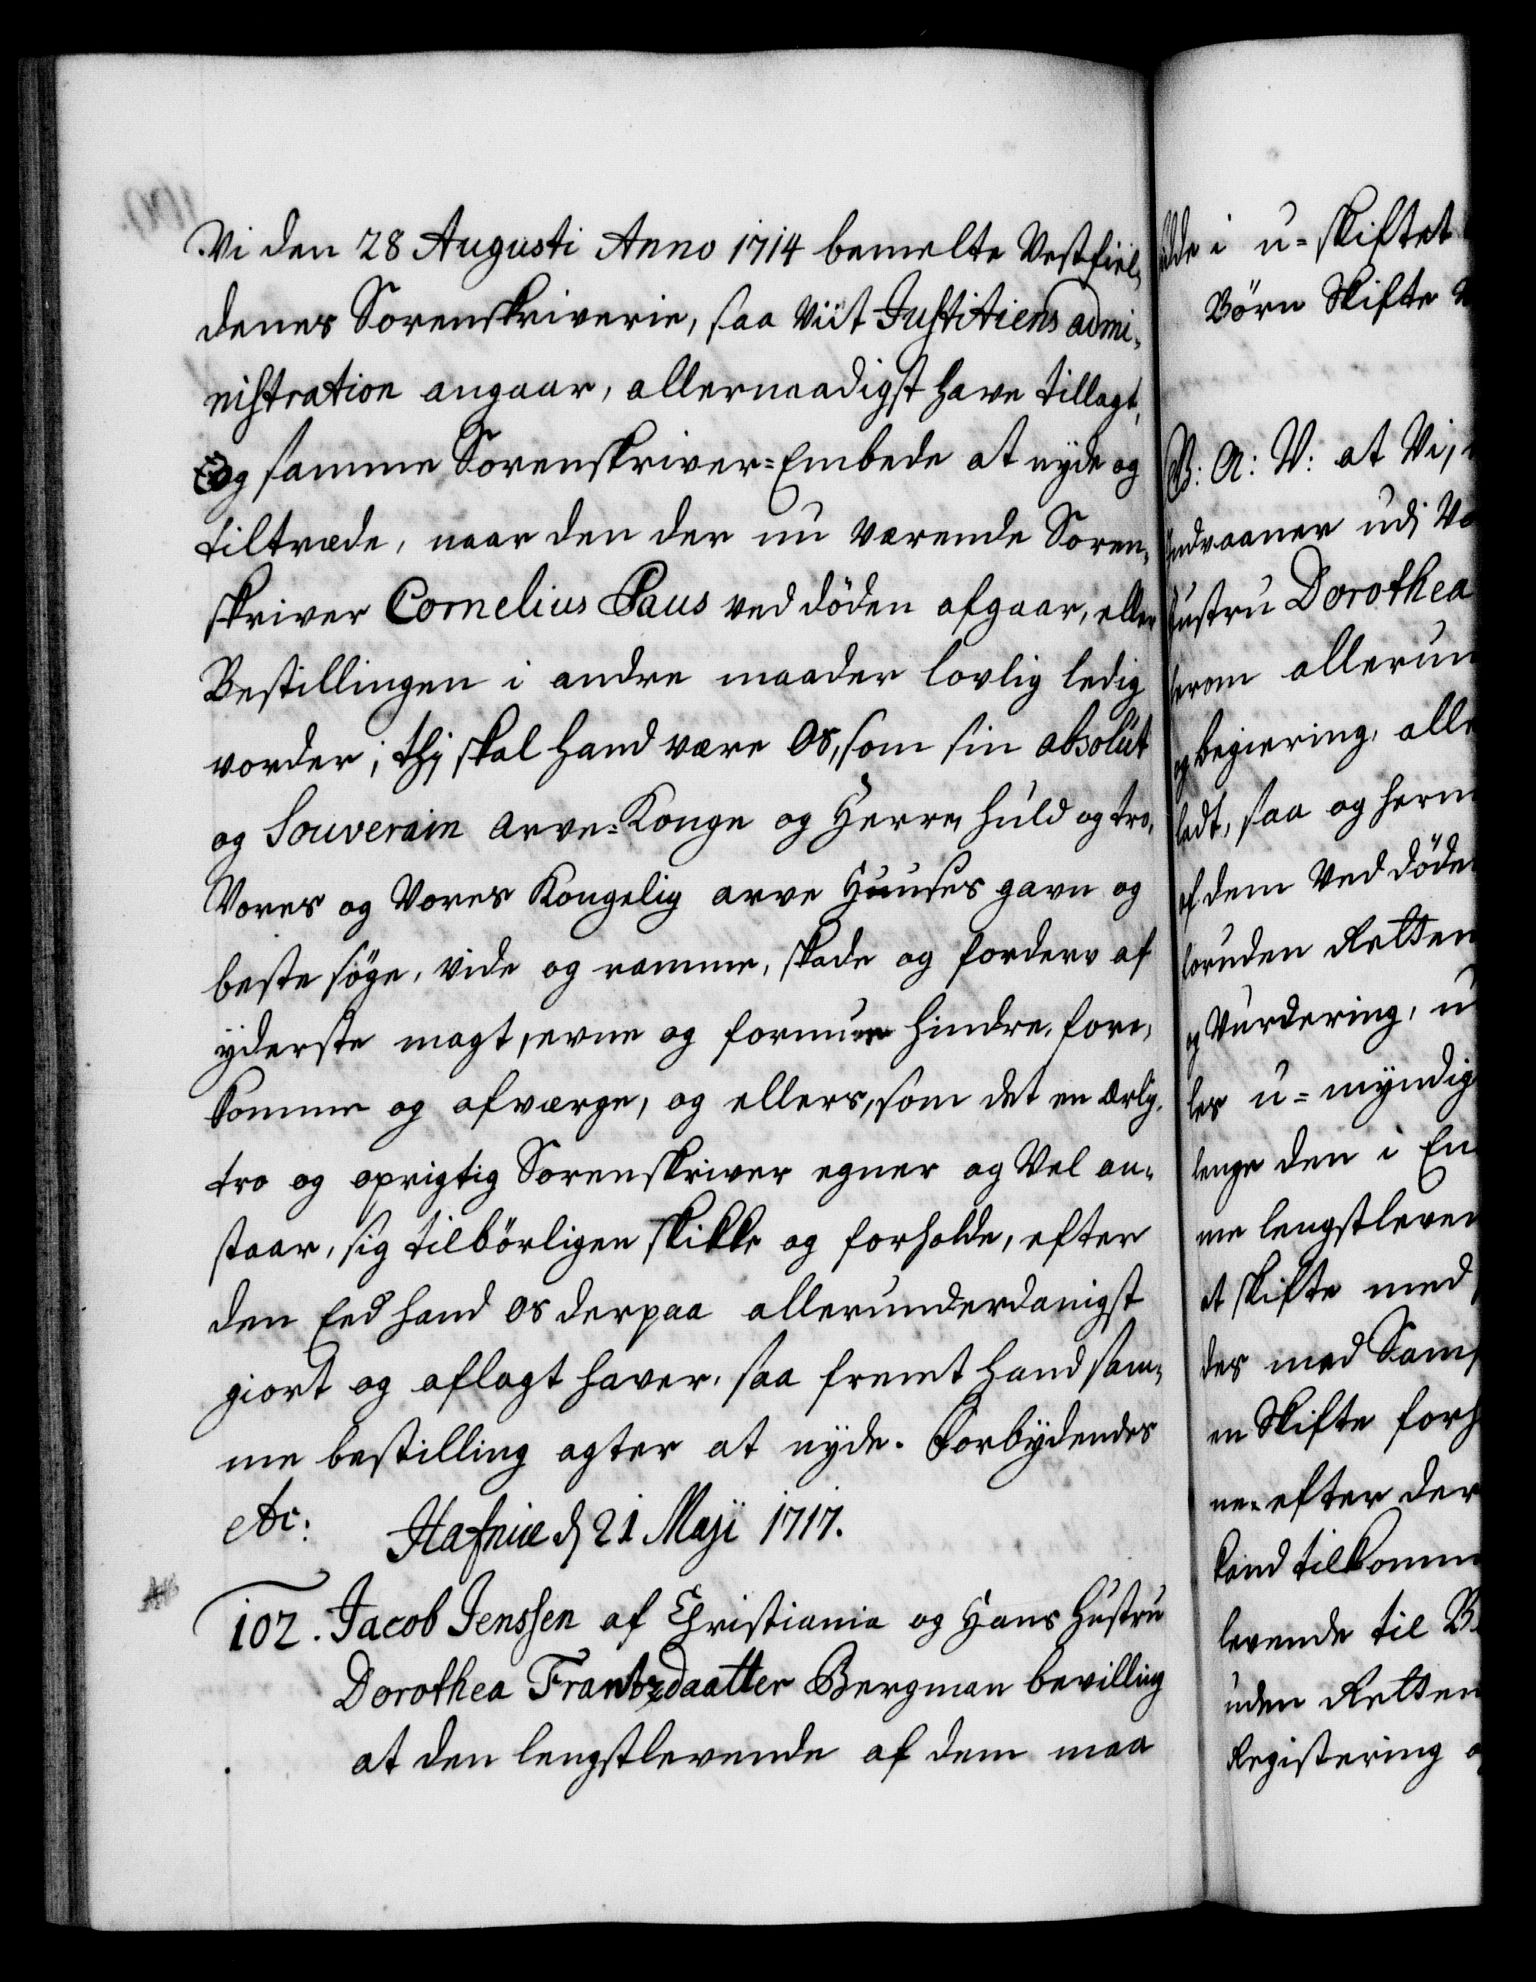 Vi den 28 Augusti Anno 1714 bemelte Vestfiel,
denes Sorenskriverie, saa viit Justitiens admi,
nistration angaar, allernaadigst have tillagt,
Og samme Sorenskriver=Embede at nyde og
tiltræde, naar den der nu værende Soren,
skriver Cornelius Paus ved döden afgaar, eller
Bestillingen i andre maader lovlig ledig
vorder; thj skal hand være Os, som sin absolut
og Souverain Arve=Konge og Herre, huld og tro,
Vores og Vores Kongelig arve Huuses gavn og
beste söge, vide og ramme, skade og forderv af
yderste magt, evne og formue hindre, fore,
komme og afværge, og ellers, som det en ærlig,
tro og oprigtig Sorenskriver egner og Vel an,
staar, sig tilbörligen skikke og forholde, efter
den Eed hand os derpaa allerunderdanigst
giort og aflagt haver, saa fremt hand sam,
me bestilling agter at nyde. Forbydendes
etc: Hafniæ d 21 Maji 1717.
102. Jacob Jenssen af Christiania og Hans Hustru
Dorothea Frantzdaatter Bergman bevilling
at den lengstlevende af dem maa
i u=skiftet
Börn Skifte
B: A: V: at Vi,
Indvaaner udj
Hustru Dorothea
allerun
og begiering, alle
ladt, saa og herm
af dem Ved döde
foruden Retten
og Vurdering, u
les u=myndig
lenge den i En
me lengstleven
at skifte med
des med Sam
en Skifte forh
ne efter der
kand tilkomm
levende til B
uden Retten
Registering